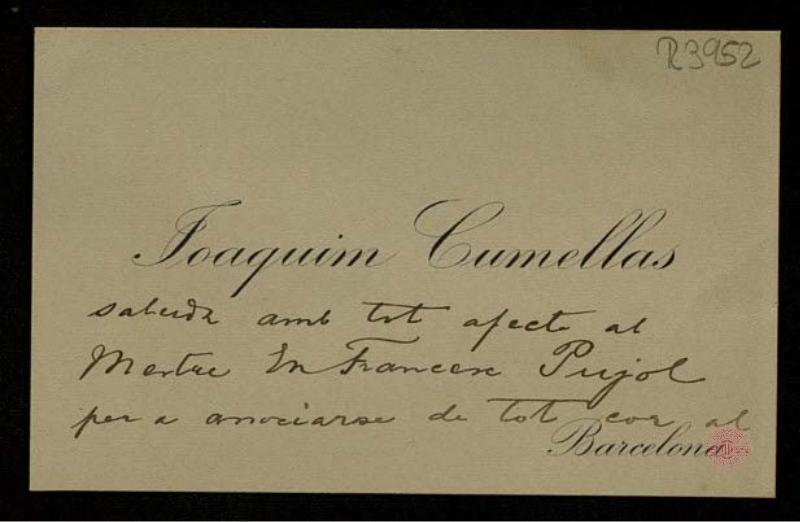 R3952
Joaquim Cumellas
saluda amb tot afecte al
Mestre En Francesc Pujol
per a associarse de tot cor al
Barcelona